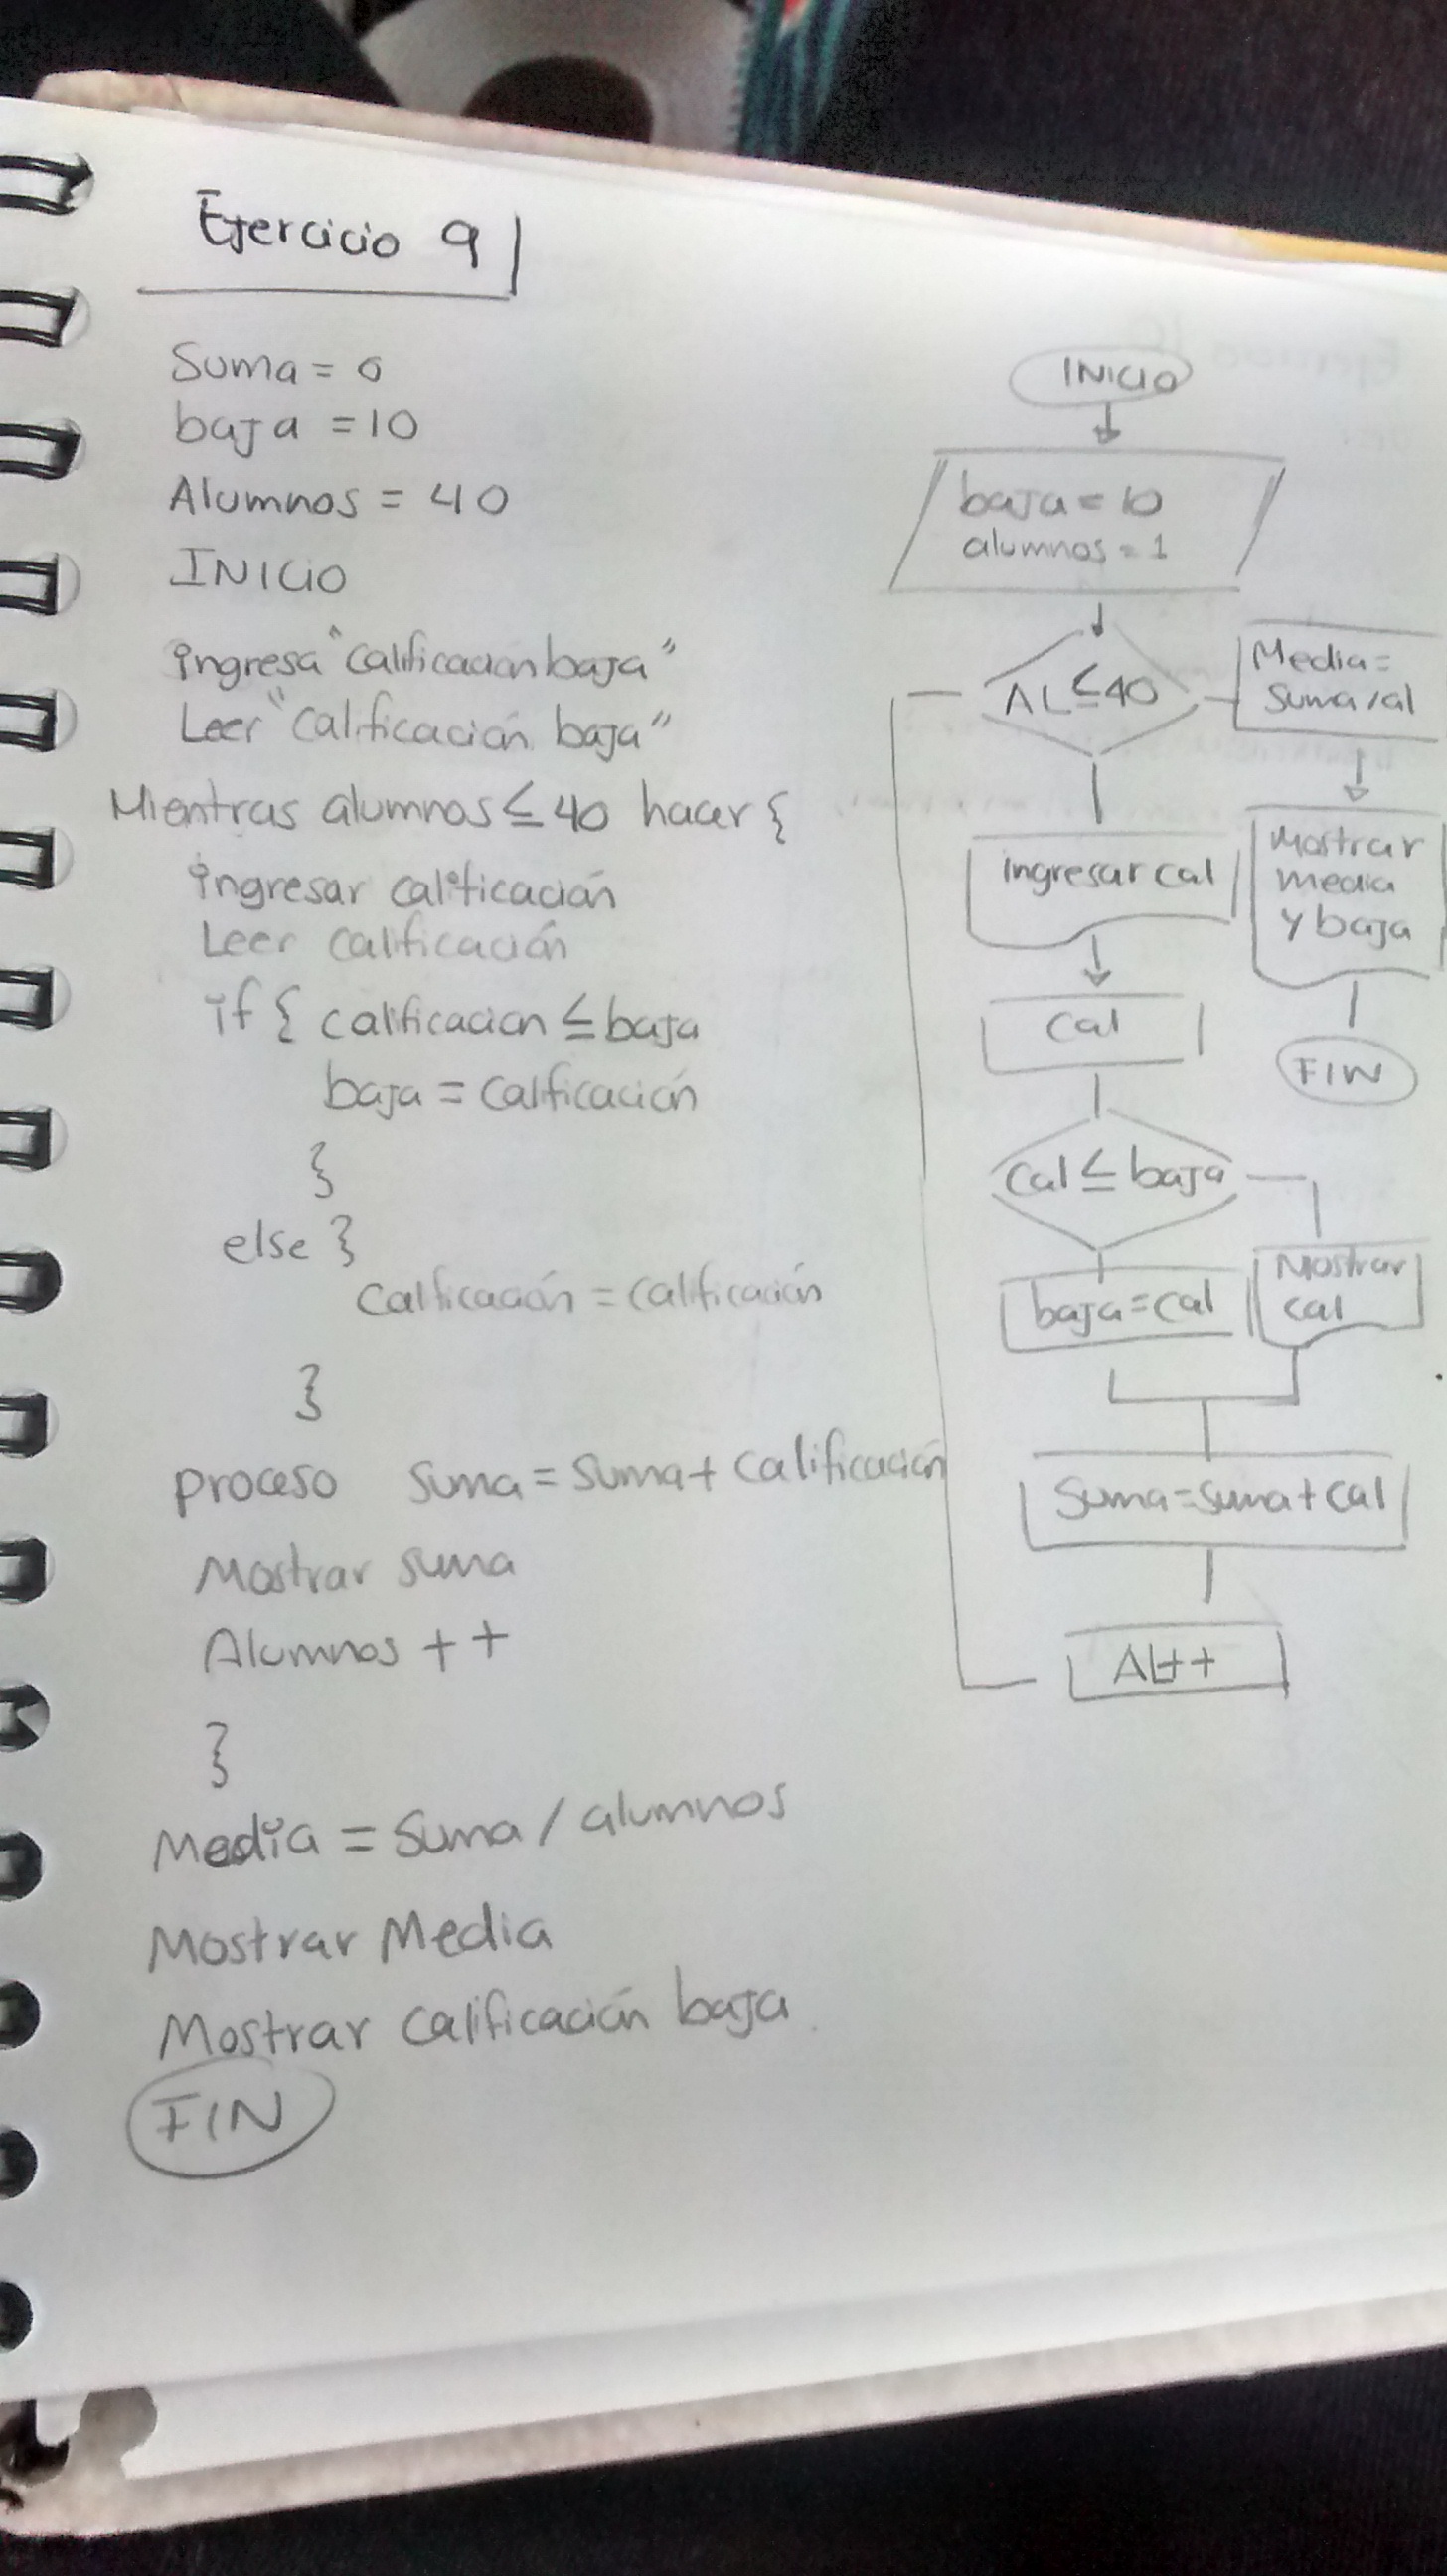 Ejercicio 9
Suma = 0
baja = 10
Alumnos = 40
INICIO
ingresa "calificacion baja"
Leer "calificación baja"
Mientras alumnos ≤ 40 hacer {
ingresar calificación
Leer calificación
if { calificacion ≤ baja
baja = calificación
}
else }
calificación = calificación
}
proceso suma = suma + calificación
Mostrar suma
Alumnos ++
}
Media = suma / alumnos
Mostrar Media
Mostrar calificación baja
FIN
INICIO
baja = 10
alumnos = 1
AL ≤ 40
Media =
suma / al
Ingresar cal
Mostrar
media
y baja
cal
FIN
Cal ≤ baja
baja = cal
Mostrar
cal
Suma = suma + cal
AL++